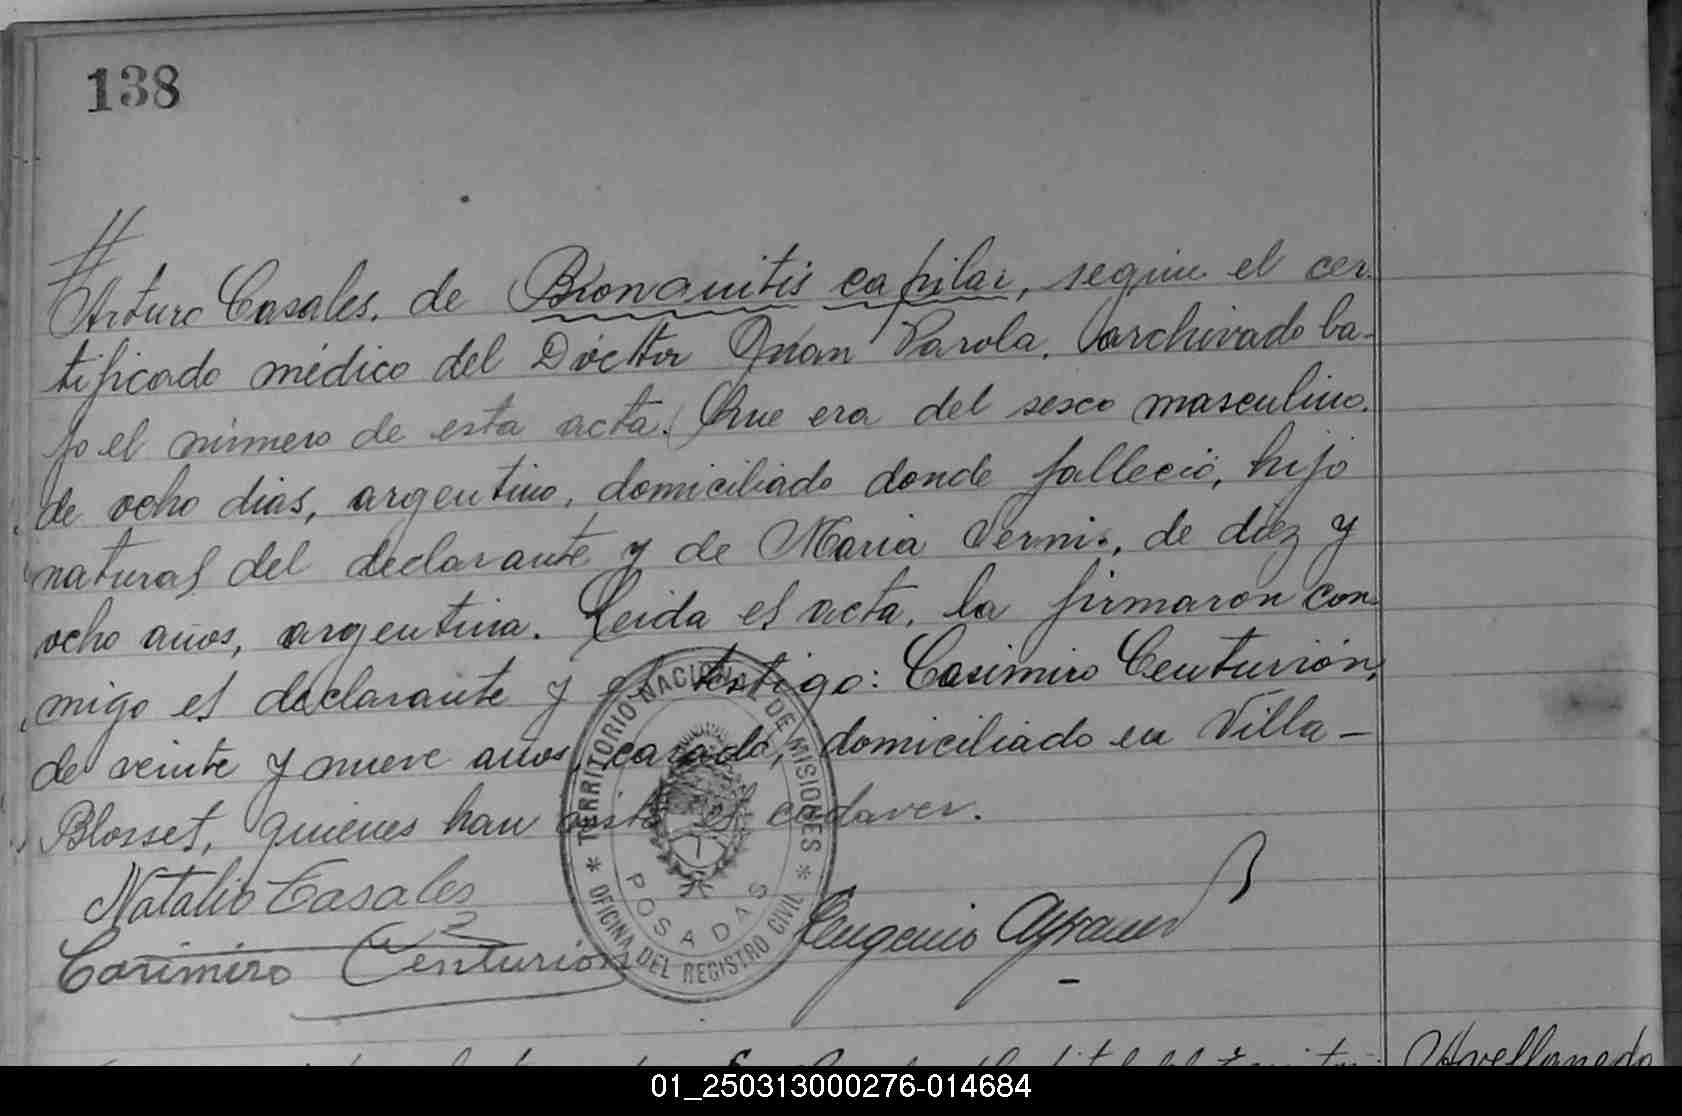 138
Arturo Casales, de Bronquitis capilar, según el cer-
tificado médico del Dóctor Juan Parola, archivado ba-
jo el número de esta acta. Que era del sesco masculino,
de ocho dias, argentino, domiciliado donde falleció, hijo
natural del declarante y de Maria Vernis, de diez y
ocho años, argentina. Leida el acta, la firmaron con-
migo el declarante y el testigo: Casimiro Centurión,
de veinte y nueve años, casado, domiciliado en Villa -
Blosset, quienes han visto el cadaver.
Natalio Casales
Casimiro Centurión
Eugenio
TERRITORIO NACIONAL DE MISIONES
* OFICINA DEL REGISTRO CIVIL *
POSADAS
Avellaneda
01_250313000276-014684